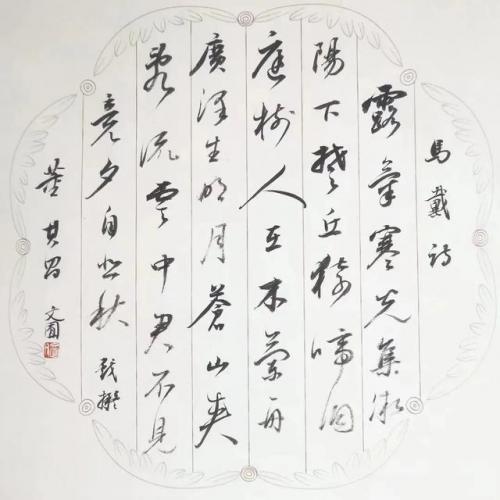 馬戴詩
露氣寒光集微
陽下楚丘猿啼洞
庭樹人在木蘭舟
廣澤生明月蒼山夾
亂流雲中君不見
竟夕自悲秋 戲擬
董其昌 文